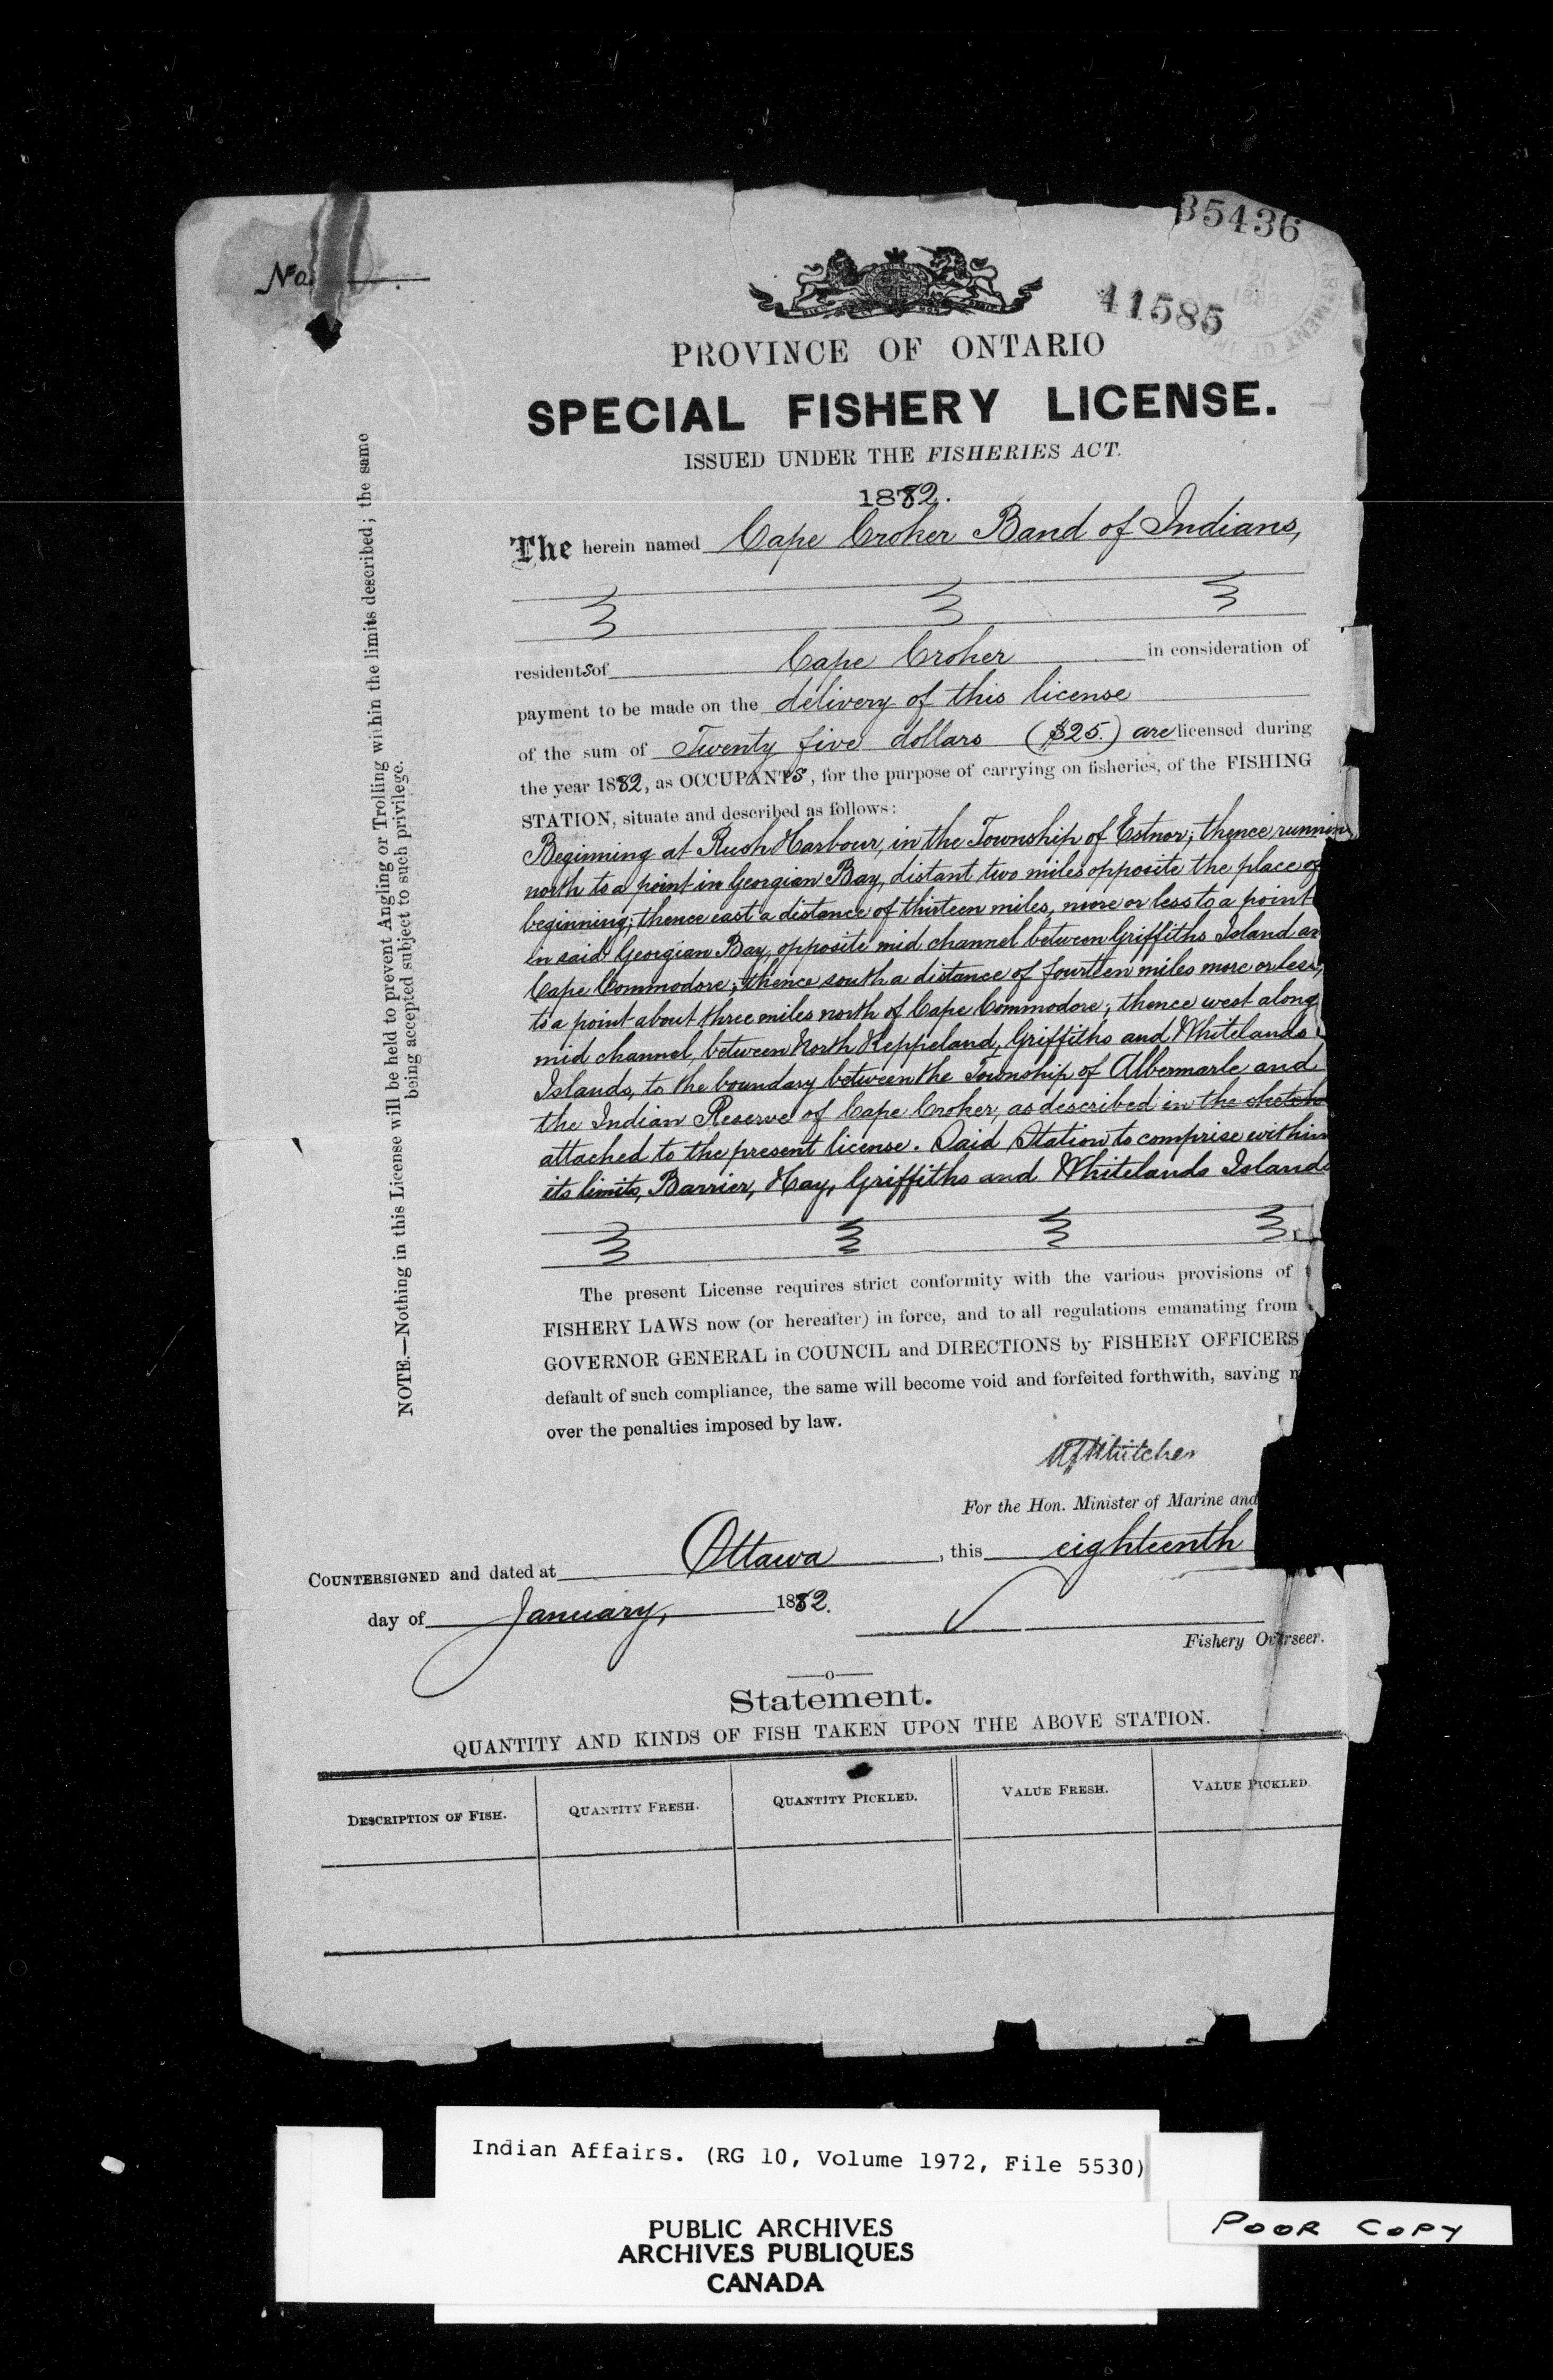 35436
No.
11585
PROVINCE OF ONTARIO
SPECIAL FISHERY LICENSE.
ISSUED UNDER THE FISHERIES ACT.
1882.
The herein named Cape Croker Band of Indians,
residents of Cape Croker in consideration of
payment to be made on the delivery of this license
of the sum of Twenty five dollars ($25.) are licensed during
the year 1882, as OCCUPANTS, for the purpose of carrying on fisheries, of the FISHING
STATION, situate and described as follows:
Beginning at Rush Harbour, in the Township of Estnor; thence runnin
north to a point in Georgian Bay, distant two miles opposite the place of
beginning; thence east a distance of thirteen miles, more or less to a point
in said Georgian Bay, opposite mid channel between Griffiths Island an
Cape Commodore; thence south a distance of fourteen miles more or less,
to a point about three miles north of Cape Commodore; thence west along
mid channel, between North Keppeland, Griffiths and Whitelands
Islands, to the boundary between the Township of Albermarle and
the Indian Reserve of Cape Croker, as described in the sketch
attached to the present license. Said Station to comprise within
its limits, Barrier, Hay, Griffiths and Whitelands Islands
The present License requires strict conformity with the various provisions of
FISHERY LAWS now (or hereafter) in force, and to all regulations emanating from
GOVERNOR GENERAL in COUNCIL and DIRECTIONS by FISHERY OFFICERS
default of such compliance, the same will become void and forfeited forthwith, saving m
over the penalties imposed by law.
W F Whitcher
For the Hon. Minister of Marine and
COUNTERSIGNED and dated at Ottawa, this eighteenth
day of January, 1882.
Fishery Overseer.
Statement.
QUANTITY AND KINDS OF FISH TAKEN UPON THE ABOVE STATION.
DESCRIPTION OF FISH. QUANTITY FRESH. QUANTITY PICKLED. VALUE FRESH. VALUE PICKLED.
NOTE.—Nothing in this License will be held to prevent Angling or Trolling within the limits described; the same
being accepted subject to such privilege.
Indian Affairs. (RG 10, Volume 1972, File 5530)
PUBLIC ARCHIVES
ARCHIVES PUBLIQUES
CANADA
POOR COPY